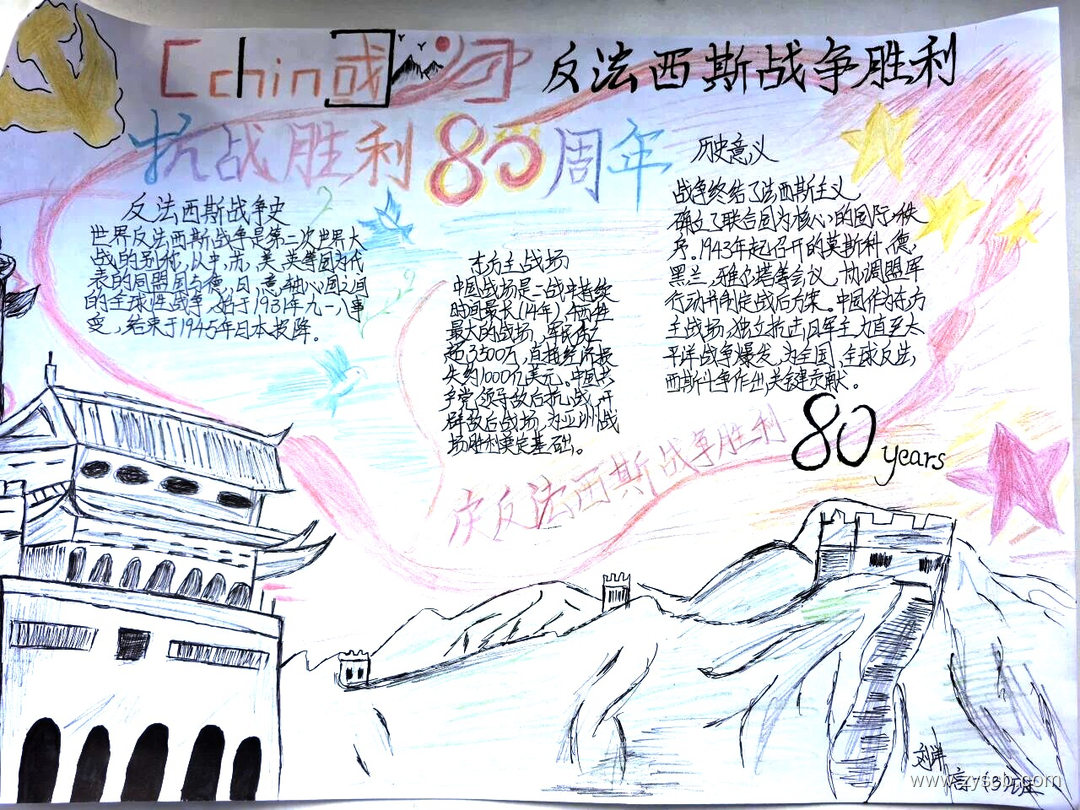 China 或
反法西斯战争胜利
抗战胜利80周年
反法西斯战争史
世界反法西斯战争是第二次世界大
战的别称，从中、苏、美、英等国为代
表的同盟国与德、日、意轴心国之间
的全球性战争，始于1931年九一八事
变，结束于1945年日本投降。
东方主战场
中国战场是二战中持续
时间最长(14年)、牺牲
最大的战场，军民伤亡
超3500万，直接经济损
失约1000亿美元。中国共
产党领导敌后抗战，开
辟敌后战场，为亚洲战
场胜利奠定基础。
历史意义
战争终结了法西斯主义，
确立了联合国为核心的国际秩
序。1943年起召开的莫斯科、德
黑兰、雅尔塔等会议，协调盟军
行动并制定战后方案。中国作为东方
主战场，独立抗击日军主力直至太
平洋战争爆发，为全国、全球反法
西斯斗争作出关键贡献。
80 years
庆反法西斯战争胜利